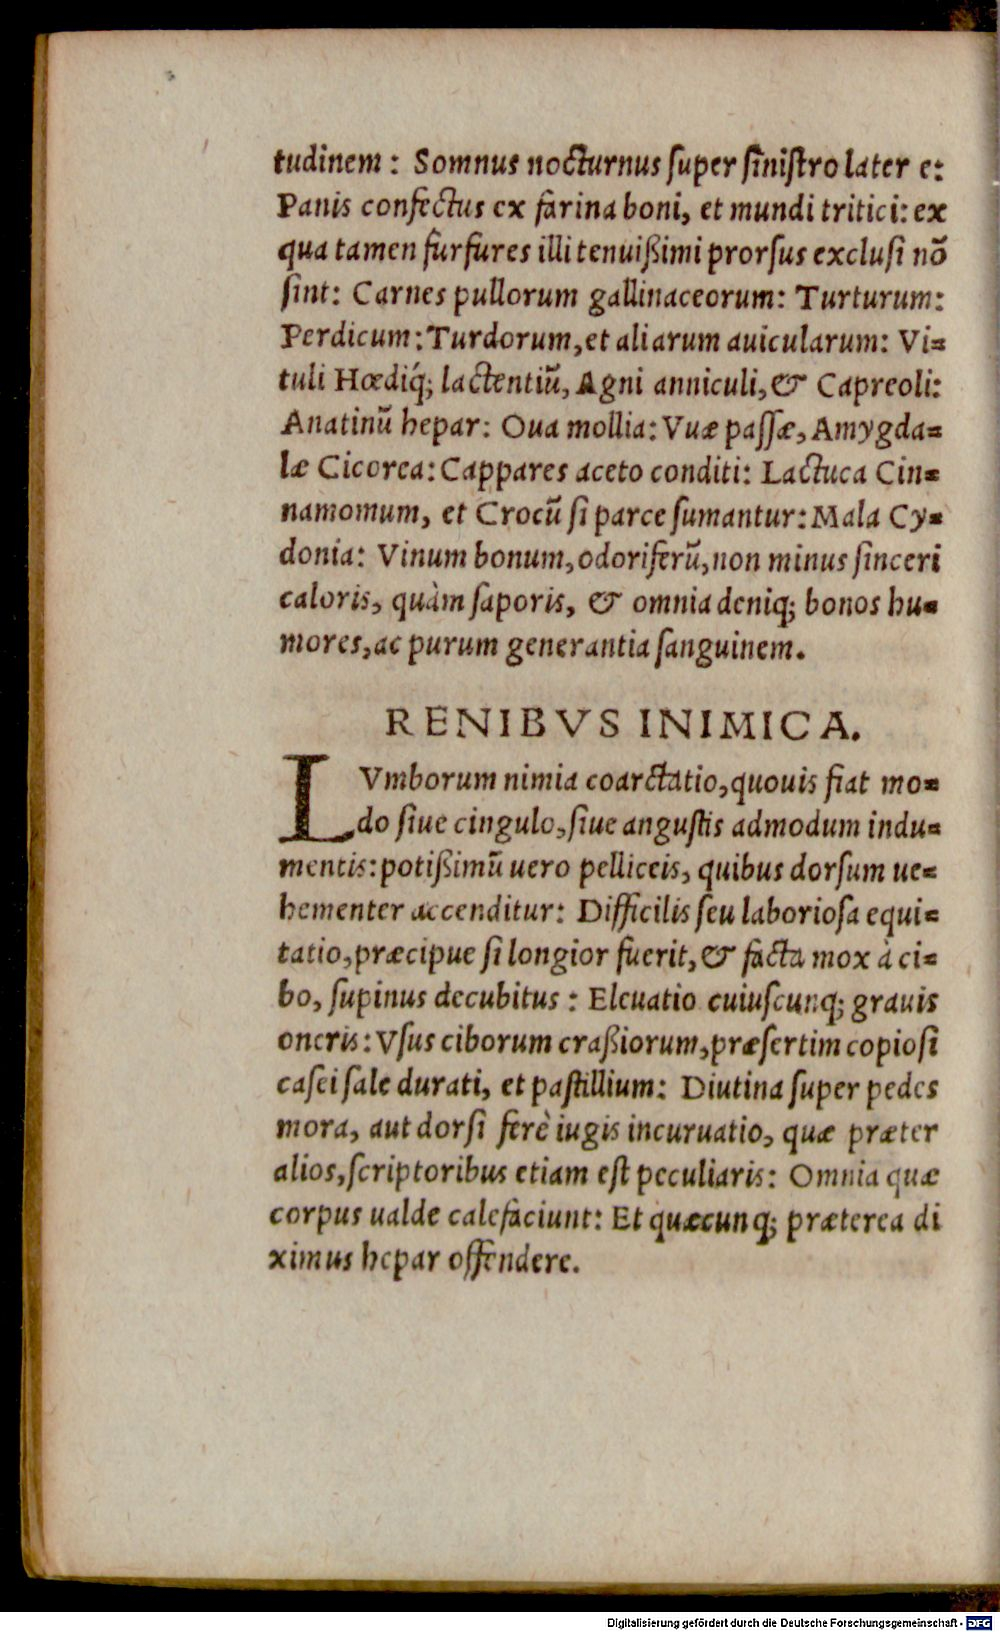 tudinem : Somnus nocturnus ſuper ſiniſtro later e:
Panis confectus ex farina boni, et mundi tritici: ex
qua tamen furfures illi tenuißimi prorſus excluſi nō
ſint: Carnes pullorum gallinaceorum: Turturum:
Perdicum: Turdorum, et aliarum auicularum: Vi=
tuli Hœdiq́; lactentiū, Agni anniculi, & Capreoli:
Anatinū hepar: Oua mollia: Vuæ paſſæ, Amygda=
læ Cicorea: Cappares aceto conditi: Lactuca Cin=
namomum, et Crocū ſi parce ſumantur: Mala Cy=
donia: Vinum bonum, odoriferū, non minus ſinceri
caloris, quàm ſaporis, & omnia deniq; bonos hu=
mores, ac purum generantia ſanguinem.
RENIBVS INIMICA.
LVmborum nimia coarctatio, quouis fiat mo=
do ſiue cingulo, ſiue anguſtis admodum indu=
mentis: potißimū uero pelliceis, quibus dorſum ue=
hementer accenditur: Difficilis ſeu laborioſa equi=
tatio, præcipue ſi longior fuerit, & facta mox à ci=
bo, ſupinus decubitus : Eleuatio cuiuſcunq; grauis
oneris: Vſus ciborum craßiorum, præſertim copioſi
caſei ſale durati, et paſtillium: Diutina ſuper pedes
mora, aut dorſi ferè iugis incuruatio, quæ præter
alios, ſcriptoribus etiam eſt peculiaris: Omnia quæ
corpus ualde calefaciunt: Et quæcunq; præterea di
ximus hepar offendere.
Digitalisierung gefördert durch die Deutsche Forschungsgemeinschaft - DFG